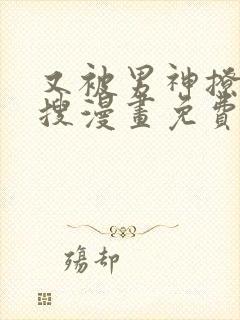 又被男神撩
搜漫畫免費
殤却